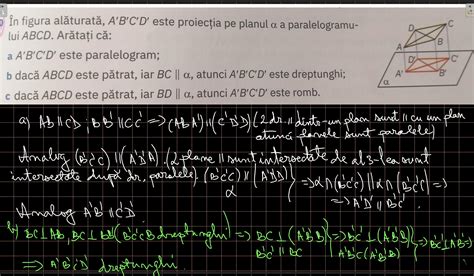 În figura alăturată, A'B'C'D' este proiecția pe planul α a paralelogramu-
lui ABCD. Arătați că:
a A'B'C'D' este paralelogram;
b dacă ABCD este pătrat, iar BC ∥ α, atunci A'B'C'D' este dreptunghi;
c dacă ABCD este pătrat, iar BD ∥ α, atunci A'B'C'D' este romb.
D C
A B
D' C'
A' B'
α
a) AB ∥ CD; BB' ∥ CC' => (ABA') ∥ (C'D'D) (2 dr. ∥ dintr-un plan sunt ∥ cu un plan
atunci planele sunt paralele)
Analog (B'C'C) ∥ (A'D'A). (2 plane ∥ sunt intersectate de al 3-lea sunt
intersectate după dr. paralele). (B'C'C) ∥ (A'D'A) } => α ∩ (B'C'C) ∥ α ∩ (B'C'C) =>
α => A'D' ∥ B'C'
Analog A'B' ∥ C'D'
b) BC ⊥ AB, BC ⊥ BB' (B'C'CB dreptunghi) => BC ⊥ (A'B'B) } => B'C' ⊥ (A'B'B) } => B'C' ⊥ A'B' =>
B'C' ∥ BC A'B' ⊂ (A'B'B)
=> A'B'C'D' dreptunghi.